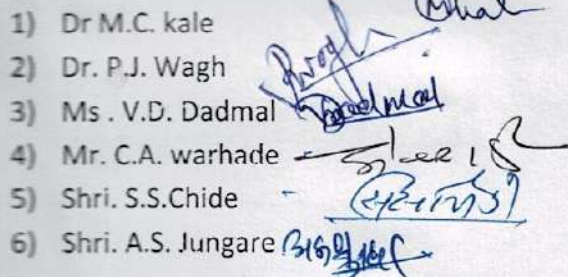 1) Dr M.C. kale
2) Dr. P.J. Wagh
3) Ms . V.D. Dadmal Dadmal
4) Mr. C.A. warhade
5) Shri. S.S.Chide -
6) Shri. A.S. Jungare